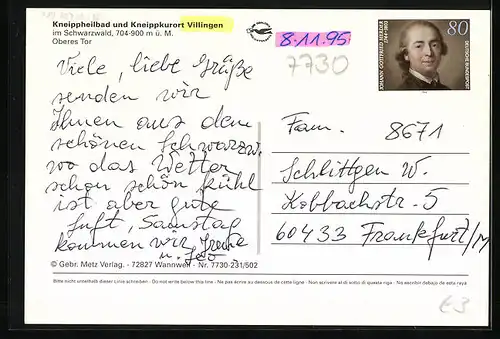 Kneippheilbad und Kneippkurort Villingen
im Schwarzwald, 704-900 m ü. M.
Oberes Tor
8.11.95
7730
80
JOHANN GOTTFRIED HERDER
1744-1803
DEUTSCHE BUNDESPOST
Viele, liebe Grüße
senden wir
Ihnen aus dem
schönen Schwarzw.
wo das Wetter
schon schön kühl
ist aber gute
Luft, Samstag
kommen wir
u.
Fam. 8671
Schlittgen W.
Kobbachstr. 5
60433 Frankfurt/M
© Gebr. Metz Verlag. - 72827 Wannweil - Nr. 7730-231/502
Bitte nicht unterhalb dieser Linie schreiben - Do not write below this line - Ne pas écrire au dessous de cette ligne - Non scrivere al di sotto di questa riga - No escribir debajo de esta raya
€3